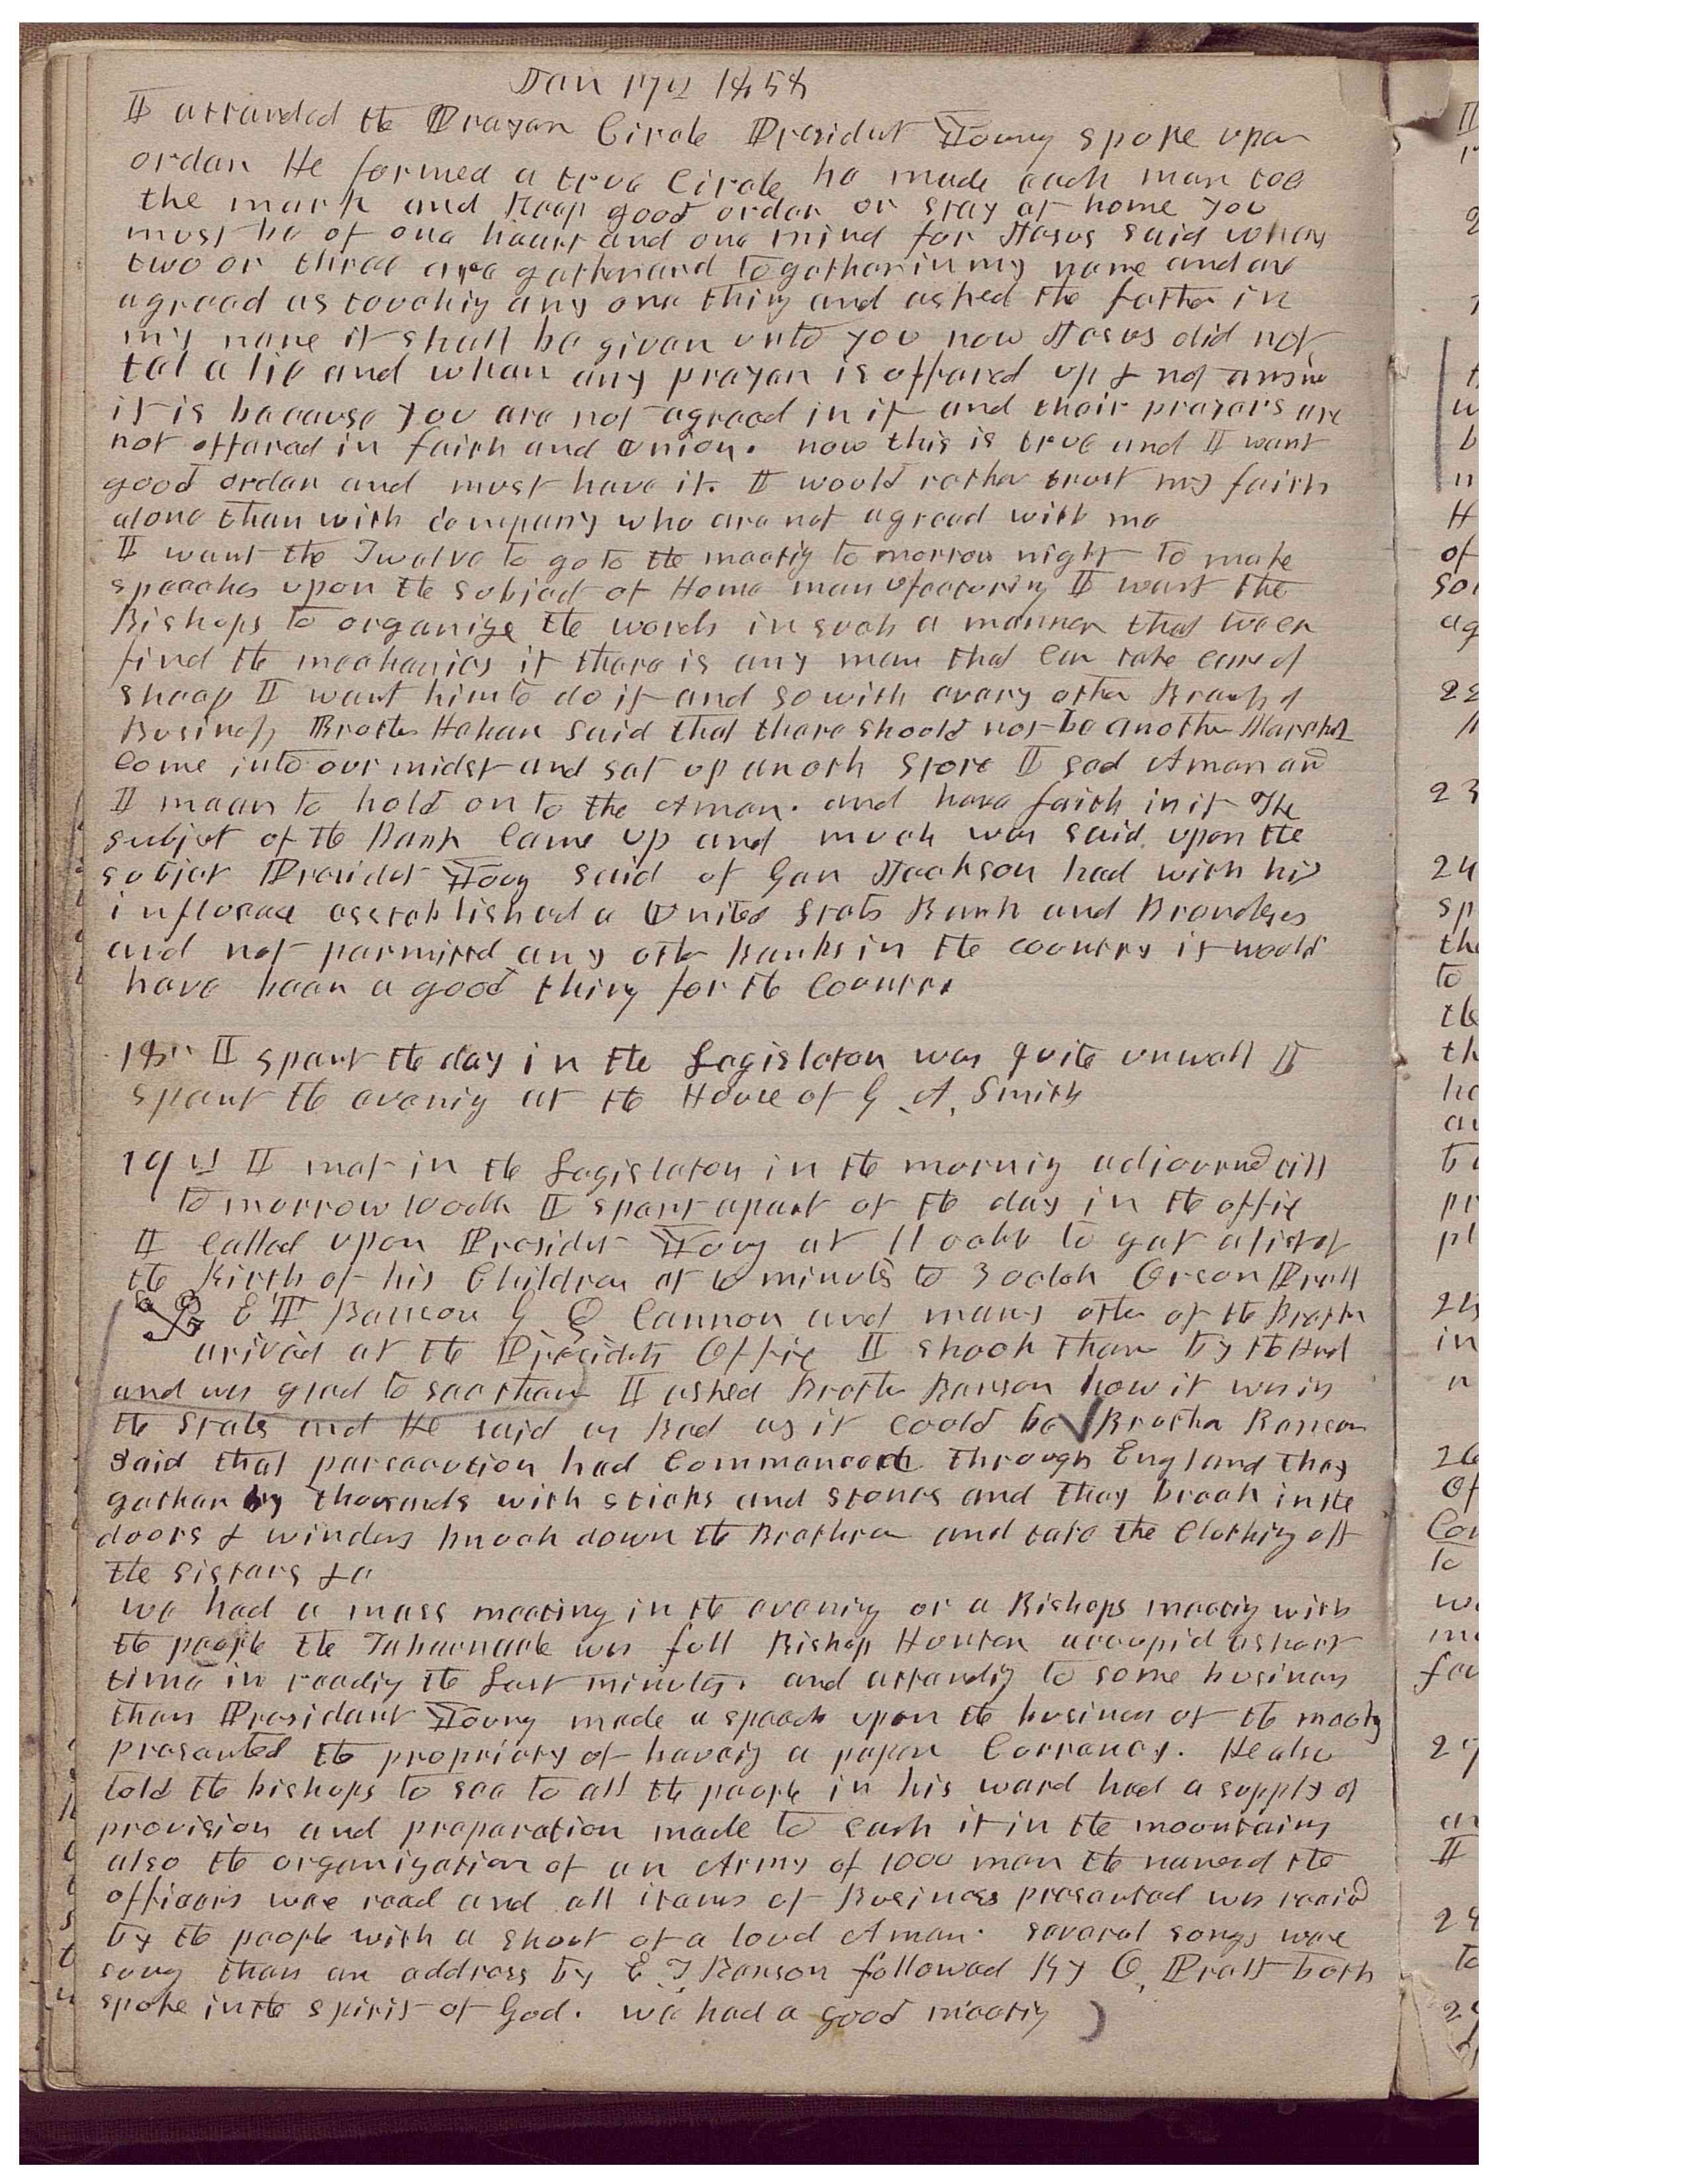 Jan 17th 1858
I attended the Prayer Circle President Young spoke upon
order He formed a true Circle he made each man toe
the mark and keep good order or stay at home you
must be of one heart and one mind for Jesus said whare
two or three are gathered together in my name and are
agreed as touching any one thing and asked the father in
my name it shall be given unto you now Jesus did not
tel a lie and when any prayer is offered up & not answ
it is because you are not agreed in it and their prayers are
not offered in faith and union. now this is true and I want
good order and must have it. I would rather trust my faith
alone than with company who are not agreed with me
I want the Twelve to go to the meeting to morrow night to make
speeches upon the subject of Home manufacturing I want the
Bishops to organize the wards in such a manner that we can
find the mechanics if there is any man that can take care of
sheep I want him to do it and so with every other Branch of
Business Brother Heber said that there should not be another Marchat
come into our midst and set up anoth store I sad Amen and
I mean to hold on to the Amen. and have faith in it The
subjet of the Bank came up and much was said upon the
subject President Young said if Gen Jackson had with his
influence esstablished a United Stats Bank and Branches
and not permitted any other Banks in the country it would
have been a good thing for the Country
18th I spent the day in the Legislator was quite unwell I
spent the evening at the House of G. A. Smith
19th I met in the Legislator in the morning adjourned till
to morrow 10 oclk I spent apart of the day in the offic
I called upon Presidet Young at 11 oclk to get a list of
the Birth of his Children at 10 minutes to 3 oclok Orson Pratt
E T Benson G Q Cannon and many other of the Brethr
arived at the Presidets Office I shook them by the Hand
and was glad to see them I asked Brother Benson how it was in
the States and He said as Bad as it could be Brother Benson
said that persecution had Commenced through England they
gather by thousands with sticks and stones and they break in the
doors & winders knock down the Brethren and take the Clothing off
the sisters &c
we had a mass meeting in the evening or a Bishops meeting with
the people the Tabernacle was full Bishop Hunter occupid a short
time in reading the Last minutes. and attending to some business
then President Young made a speech upon the business of the meeting
presented the propriety of having a paper Currency. He also
told the bishops to see to all the people in his ward had a supply of
provision and preparation made to cash it in the mountains
also the organization of an Army of 1000 men the names of the
officers ware read and all items of Business presented was receivd
by the people with a shout of a loud Amen. several songs ware
sung then an address by E. T Benson followed By O, Pratt both
spoke in the spirit of God. we had a good meeting